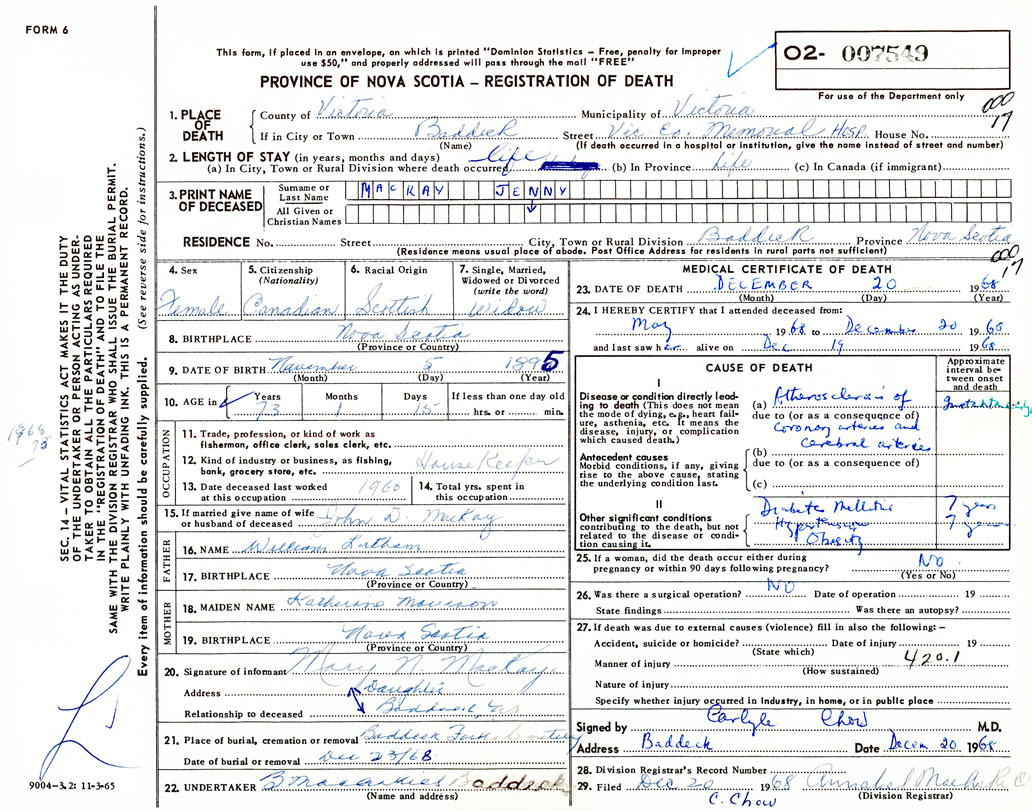 FORM 6
This form, if placed in an envelope, on which is printed "Dominion Statistics – Free, penalty for improper
use $50," and properly addressed will pass through the mail "FREE"
PROVINCE OF NOVA SCOTIA – REGISTRATION OF DEATH
O2- 007549
For use of the Department only
000
17
1. PLACE OF DEATH County of Victoria Municipality of Victoria
If in City or Town Baddeck (Name) Street Vic. Co. Memorial Hosp. House No.
(If death occurred in a hospital or institution, give the name instead of street and number)
2. LENGTH OF STAY (in years, months and days)
(a) In City, Town or Rural Division where death occurred life (b) In Province life (c) In Canada (if immigrant)
3. PRINT NAME OF DECEASED Surname or Last Name MACKAY JENNY
All Given or Christian Names
RESIDENCE No. Street City, Town or Rural Division Baddeck Province Nova Scotia
(Residence means usual place of abode. Post Office Address for residents in rural parts not sufficient)
000
17
4. Sex Female
5. Citizenship (Nationality) Canadian
6. Racial Origin Scottish
7. Single, Married, Widowed or Divorced (write the word) Widow
8. BIRTHPLACE Nova Scotia
(Province or Country)
9. DATE OF BIRTH November 5 1895
(Month) (Day) (Year)
10. AGE in Years 73 Months 1 Days 15 If less than one day old hrs. or min.
1968
73
OCCUPATION
11. Trade, profession, or kind of work as fisherman, office clerk, sales clerk, etc.
12. Kind of industry or business, as fishing, bank, grocery store, etc. HouseKeeper
13. Date deceased last worked at this occupation 1960
14. Total yrs. spent in this occupation
15. If married give name of wife or husband of deceased John D. MacKay
FATHER
16. NAME William Latham
17. BIRTHPLACE Nova Scotia
(Province or Country)
MOTHER
18. MAIDEN NAME Katherine Morrison
19. BIRTHPLACE Nova Scotia
(Province or Country)
20. Signature of informant Mary N. MacKay
Address Daughter
Relationship to deceased Baddeck, NS
21. Place of burial, cremation or removal Baddeck Forks Cemetery
Date of burial or removal Dec 23/68
22. UNDERTAKER Baddeck
(Name and address)
MEDICAL CERTIFICATE OF DEATH
23. DATE OF DEATH DECEMBER 20 1968
(Month) (Day) (Year)
24. I HEREBY CERTIFY that I attended deceased from:
May 1968 to December 20 1968
and last saw her alive on Dec 19 1968
CAUSE OF DEATH
Approximate interval between onset and death
I
Disease or condition directly leading to death (This does not mean the mode of dying, e.g., heart failure, asthenia, etc. It means the disease, injury, or complication which caused death.)
(a) Atherosclerosis of
due to (or as a consequence of)
coronary arteries and
cerebral arteries
Antecedent causes
Morbid conditions, if any, giving rise to the above cause, stating the underlying condition last.
(b)
due to (or as a consequence of)
(c)
II
Other significant conditions contributing to the death, but not related to the disease or condition causing it.
Diabetes Mellitus 7 years
Hypertension 7 years
Obesity
25. If a woman, did the death occur either during
pregnancy or within 90 days following pregnancy? No
(Yes or No)
26. Was there a surgical operation? NO Date of operation 19
State findings Was there an autopsy?
27. If death was due to external causes (violence) fill in also the following: –
Accident, suicide or homicide? Date of injury 19
(State which)
Manner of injury 420.1
(How sustained)
Nature of injury
Specify whether injury occurred in industry, in home, or in public place
Signed by Carlyle Chow M.D.
Address Baddeck Date Decem 20 1968
28. Division Registrar's Record Number
29. Filed Dec 20 1968
(Division Registrar)
C. Chow
SEC. 14 – VITAL STATISTICS ACT MAKES IT THE DUTY
OF THE UNDERTAKER OR PERSON ACTING AS UNDER-
TAKER TO OBTAIN ALL THE PARTICULARS REQUIRED
IN THE "REGISTRATION OF DEATH" AND TO FILE THE
SAME WITH THE DIVISION REGISTRAR WHO SHALL ISSUE THE BURIAL PERMIT.
WRITE PLAINLY WITH UNFADING INK. THIS IS A PERMANENT RECORD.
Every item of information should be carefully supplied. (See reverse side for instructions.)
9004–3.2: 11-3-65